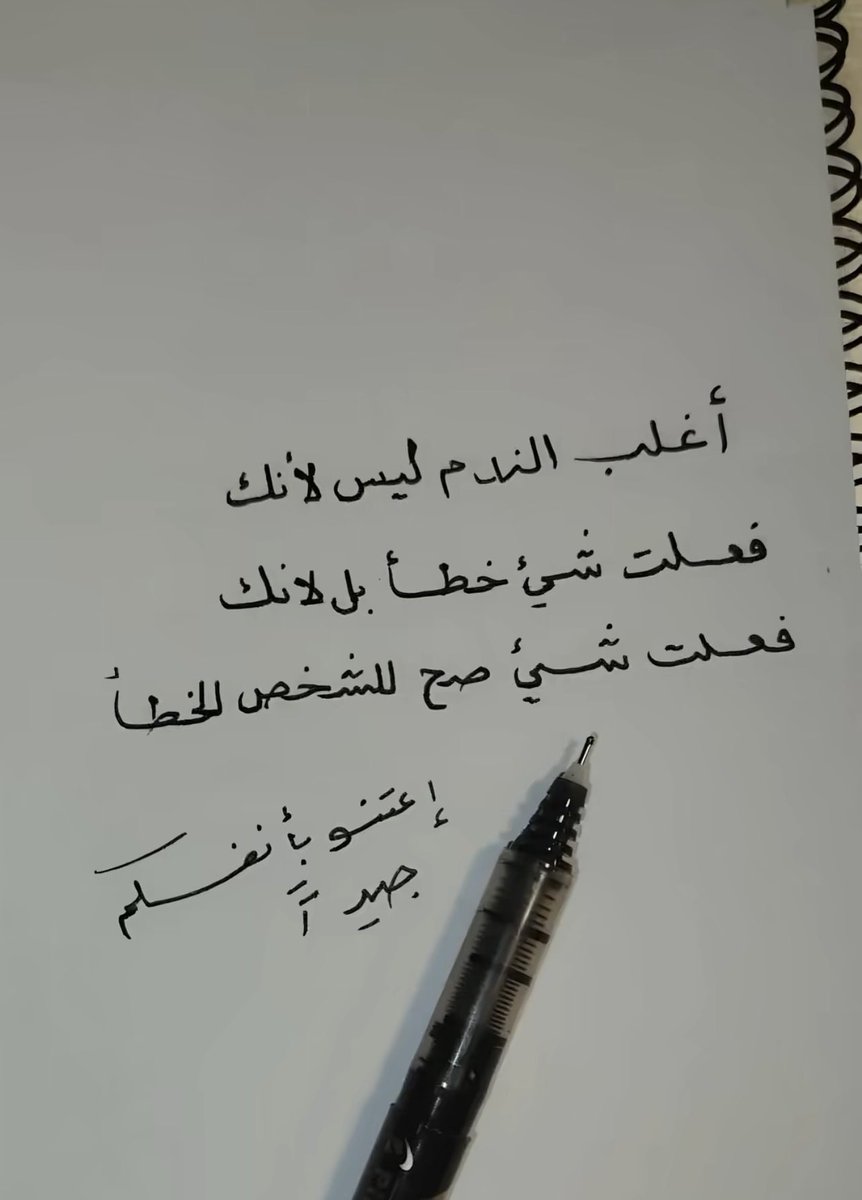 أغلب الندم ليس لأنك
فعلت شيئ خطأ بل لانك
فعلت شيئ صح للشخص الخطأ
إعتنو بأنفسكم
جيداً